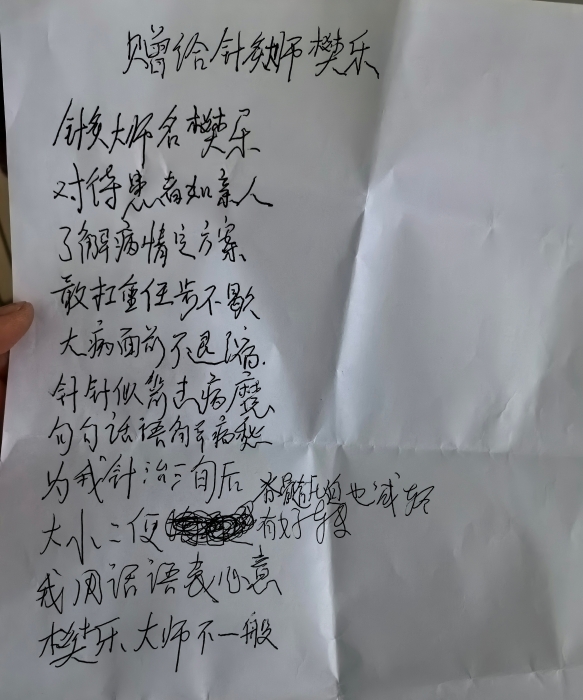 赠给针灸师樊乐
针灸大师名樊乐
对待患者如亲人
了解病情定方案
敢扛重任步不歇
大病面前不退缩.
针针似箭击病魔
句句话语解病愁
为我针治三旬后
脊髓也减轻
大小二便有好转
我用话语表心意
樊乐大师不一般